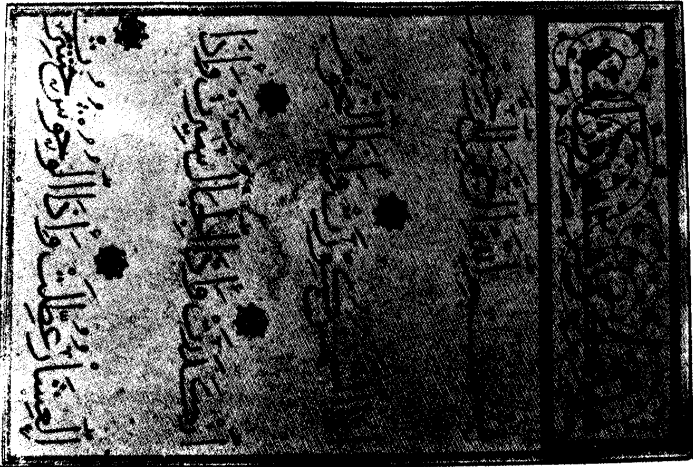 بسم الله الرحمن الرحيم
إِذَا الشَّمْسُ كُوِّرَتْ وَإِذَا النُّجُومُ
انْكَدَرَتْ وَإِذَا الْجِبَالُ سُيِّرَتْ وَإِذَا
الْعِشَارُ عُطِّلَتْ وَإِذَا الْوُحُوشُ حُشِرَتْ